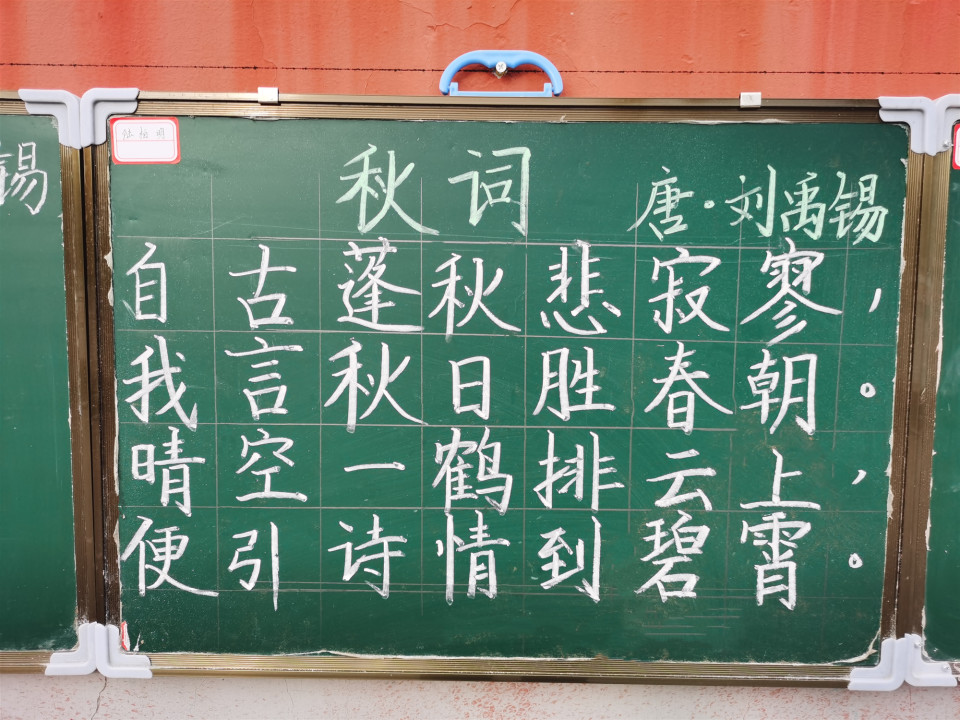 秋词
唐·刘禹锡
自古蓬秋悲寂寥，
我言秋日胜春朝。
晴空一鹤排云上，
便引诗情到碧霄。
锡